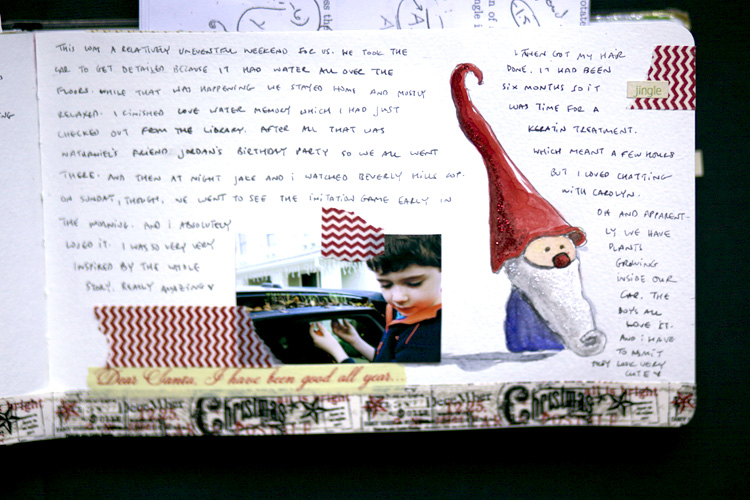 THIS WAS A RELATIVELY UNEVENTFUL WEEKEND FOR US. WE TOOK THE
CAR TO GET DETAILED BECAUSE IT HAD WATER ALL OVER THE
FLOORS. WHILE THAT WAS HAPPENING WE STAYED HOME AND MOSTLY
RELAXED. I FINISHED LOVE WATER MEMORY WHICH I HAD JUST
CHECKED OUT FROM THE LIBRARY. AFTER ALL THAT WAS
NATHANIEL'S FRIEND JORDAN'S BIRTHDAY PARTY SO WE ALL WENT
THERE. AND THEN AT NIGHT JAKE AND I WATCHED BEVERLY HILLS COP.
ON SUNDAY, THOUGH, WE WENT TO SEE THE IMITATION GAME EARLY IN
THE MORNING. AND I ABSOLUTELY
LOVED IT. I WAS SO VERY VERY
INSPIRED BY THE WHOLE
STORY. REALLY AMAZING ♥
I THEN GOT MY HAIR
DONE. IT HAD BEEN
SIX MONTHS SO IT
WAS TIME FOR A
KERATIN TREATMENT.
WHICH MEANT A FEW HOURS
BUT I LOVED CHATTING
WITH CAROLYN.
OH AND APPARENT-
LY WE HAVE
PLANTS
GROWING
INSIDE OUR
CAR. THE
BOYS ALL
LOVE IT.
AND I HAVE
TO ADMIT
THEY LOOK VERY
CUTE ♥
jingle
Dear Santa, I have been good all year...
Christmas
December
Christmas